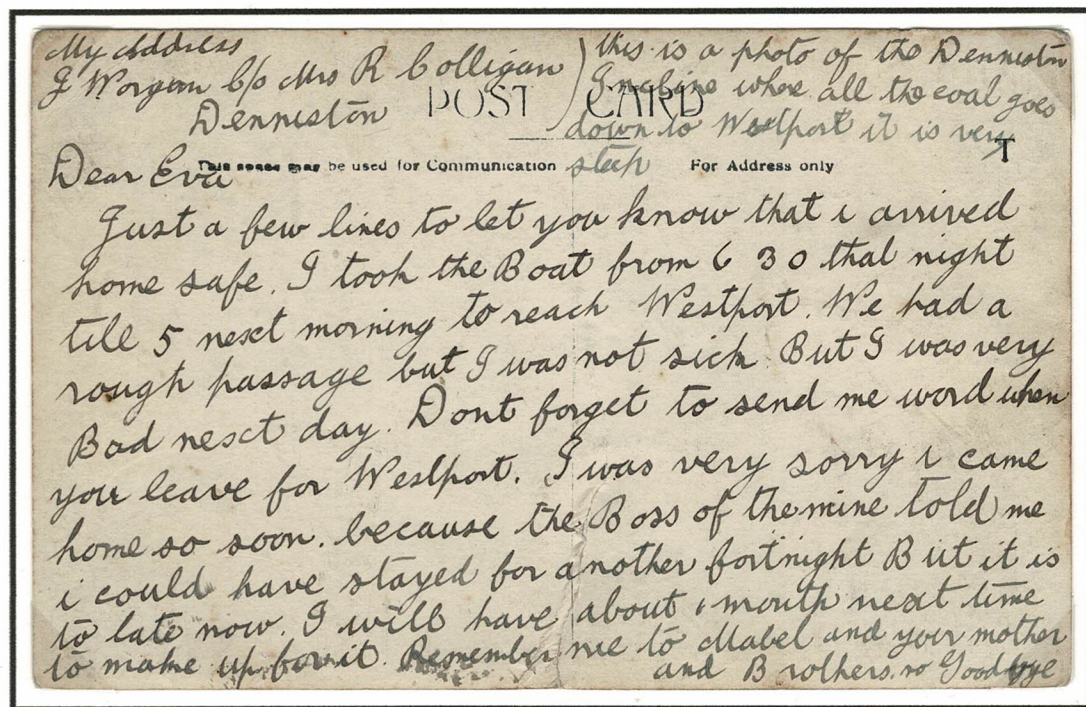 My Address
J Worgan C/o Mrs R Colligan
Denniston
this is a photo of the Denniston
Incline where all the coal goes
down to Westport it is very
steep
POST CARD
T
This space may be used for Communication
For Address only
Dear Eva
Just a few lines to let you know that i arrived
home safe. I took the Boat from 6 30 that night
till 5 nesct morning to reach Westport. We had a
rough passage but I was not sick But I was very
Bad nesct day. Dont forget to send me word when
you leave for Westport. I was very sorry i came
home so soon. because the Boss of the mine told me
i could have stayed for another fortnight But it is
to late now. I will have about 1 month next time
to make up for it. Remember me to Mabel and your mother
and Brothers. so Good bye